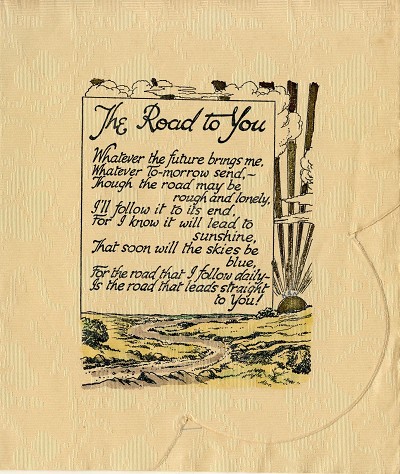 The Road to You
Whatever the future brings me,
Whatever To-morrow send,~
Though the road may be
rough and lonely,
I'll follow it to its end,
For I know it will lead to
sunshine,
That soon will the skies be
blue,
For the road that I follow daily~
Is the road that leads straight
to You!